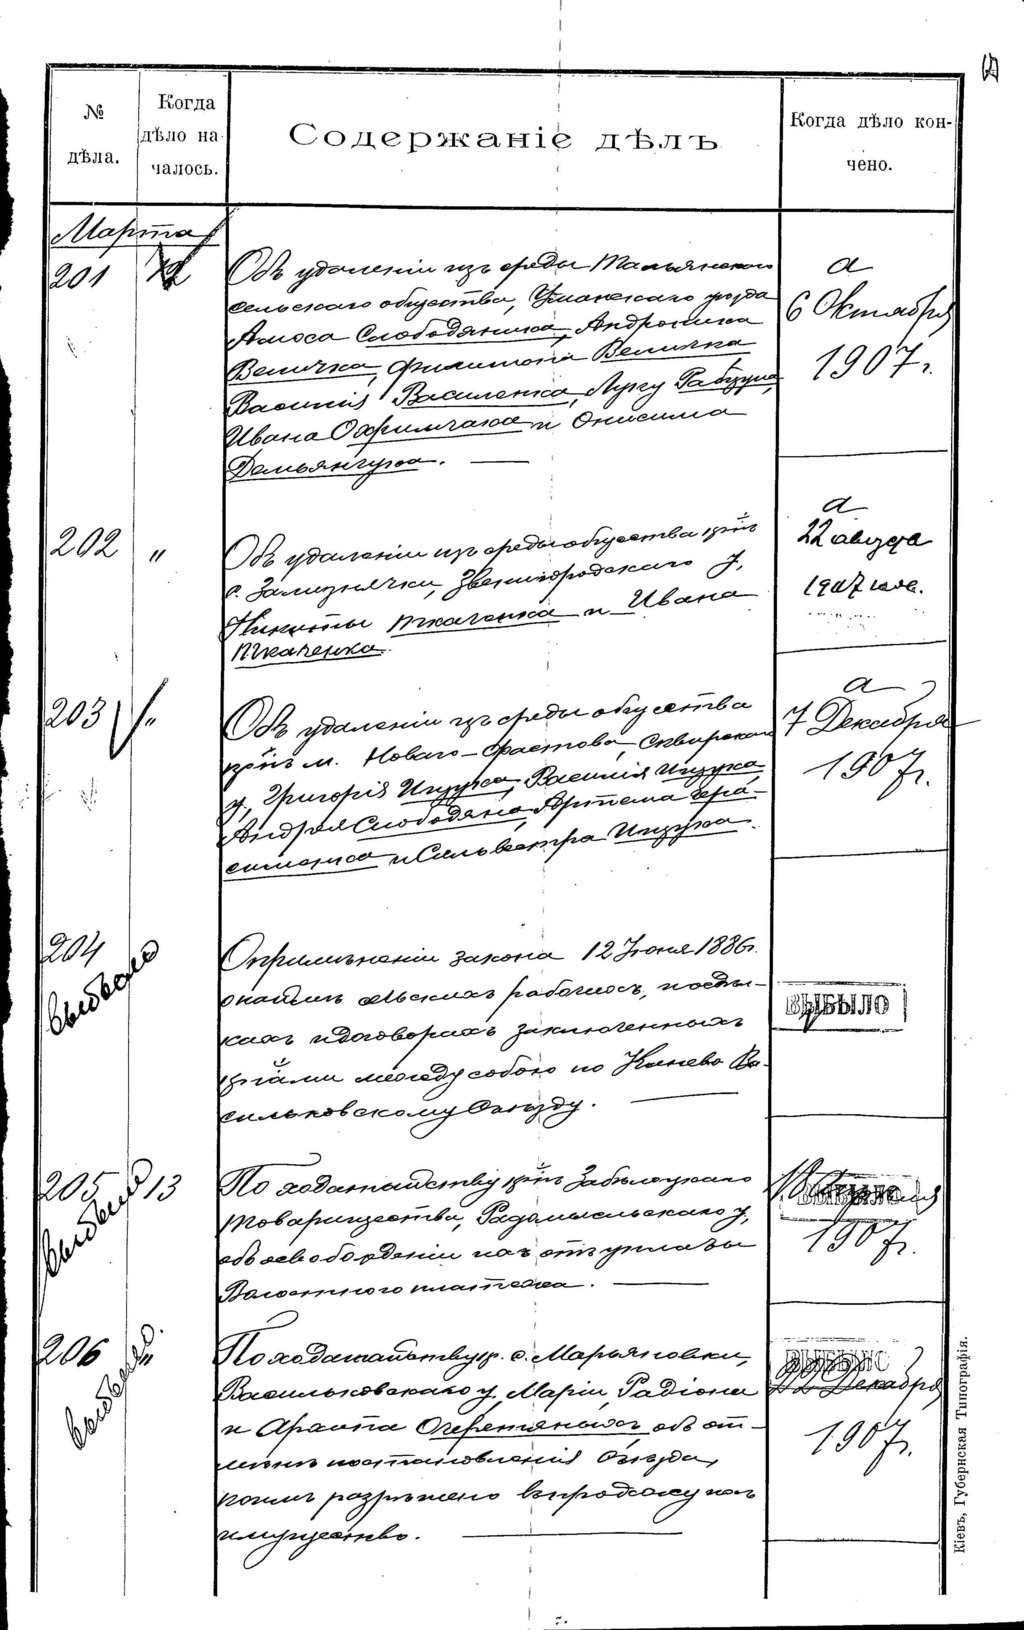 № дѣла.
Когда дѣло началось.
Содержаніе дѣлъ
Когда дѣло кончено.
Марта
201
12
Объ удаленіи изъ среды Тальянскаго
сельскаго общества, Уманскаго уѣзда
Амоса Слободяника, Андроника
Величка, Филимона Величка
Василія Василенка, Луку Рабцуна,
Ивана Охримчака и Онисима
Демьянчука.
а
6 Октября
1907 г.
202
"
Объ удаленіи изъ среды общества кр-нъ
с. Зализнячки, Звенигородскаго у,
Никиты Ткаченка и Ивана
Ткаченка.
а
22 августа
1907 года.
203
"
Объ удаленіи изъ среды общества
кр-нъ м. Новаго-Фастова, Сквирскаго
у, Григорія Ищука, Василія Ищука
Андрея Слободяна, Артема Гера-
сименка и Сильвестра Ищука.
а
7 Декабря
1907 г.
204
выбыло
О примѣненіи закона 12 Іюня 1886 г.
о наймѣ сельскихъ рабочихъ, къ сдѣл-
камъ и договорамъ заключеннымъ
кр-нами между собою по Кіево-Ва-
сильковскому Съѣзду.
ВЫБЫЛО
205
выбыло
13
По ходатайству кр-нъ Забѣлоцкаго
товарищества, Радомысльскаго у,
объ освобожденіи ихъ отъ уплаты
Волостного платежа.
ВЫБЫЛО
1907 г.
206
выбыло.
"
По ходатайству кр. с. Марьяновки,
Васильковскаго у, Маріи, Радіона
и Архипа Очеретяныхъ, объ от-
мѣнѣ постановленія Съѣзда,
коимъ разрѣшено въ продажу ихъ
имущество.
ВЫБЫЛО
22 Декабря
1907 г.
Кіевъ, Губернская Типографія.